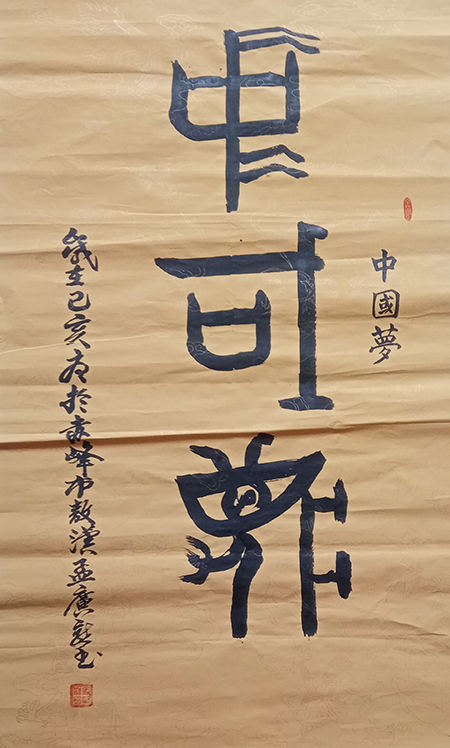 中國夢
中國夢
歲在己亥於赤峰市敖漢孟廣书